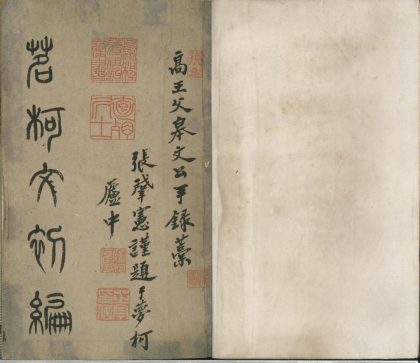 高王父皋文公手錄藁
張肇憲謹題于夢柯
廬中
茗柯文初編